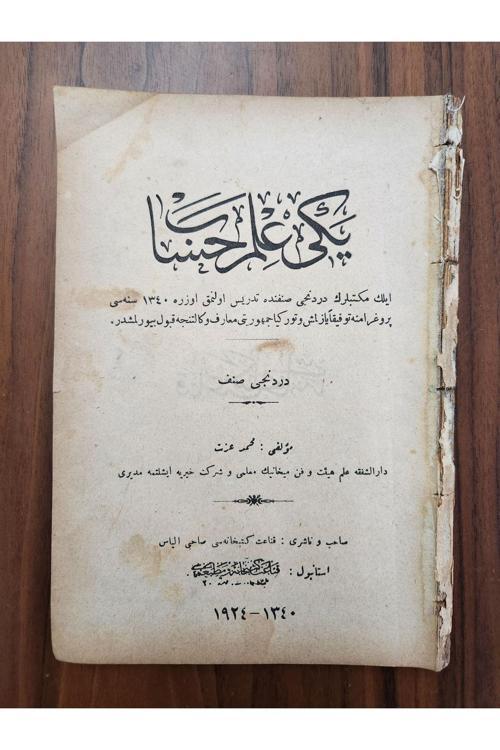 یڭی علم حساب
ایلك مكتبلرك دردنجی صنفنده تدریس اولنمق اوزره ١٣٤٠ سنه‌سی
پروغرامنه توفیقاً یازلمش و توركیا جمهوریتی معارف وكالتنجه قبول بیورلمشدر.
دردنجی صنف
مؤلفی : محمد عزت
دارالشفقه علم هیئت و فن میخانیك معلمی و شركت خیریه ایشلتمه مدیری
صاحب و ناشری : قناعت كتبخانه‌سی صاحبی الیاس
استانبول : قناعت كتبخانه و مطبعه‌سی
١٣٤٠ – ١٩٢٤